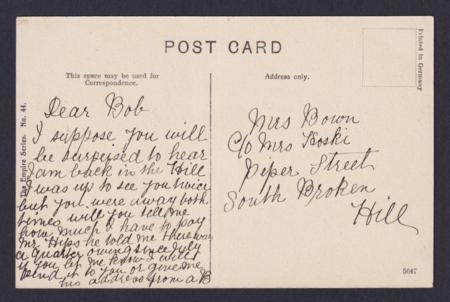 POST CARD
Printed in Germany
This space may be used for
Correspondence.
Address only.
The Empire Series. No. 44.
Dear Bob
I suppose you will
be surprised to hear
I am back in the Hill
I was up to see you twice
but you were away both
times will you tell me
how much I have to pay
Mr. he told me there was
a quarter owing since July
if you let me know I will
send it to you or give me
his address from a B
Mrs Bown
C/o Mrs Koski
Piper Street
South Broken
Hill
5647